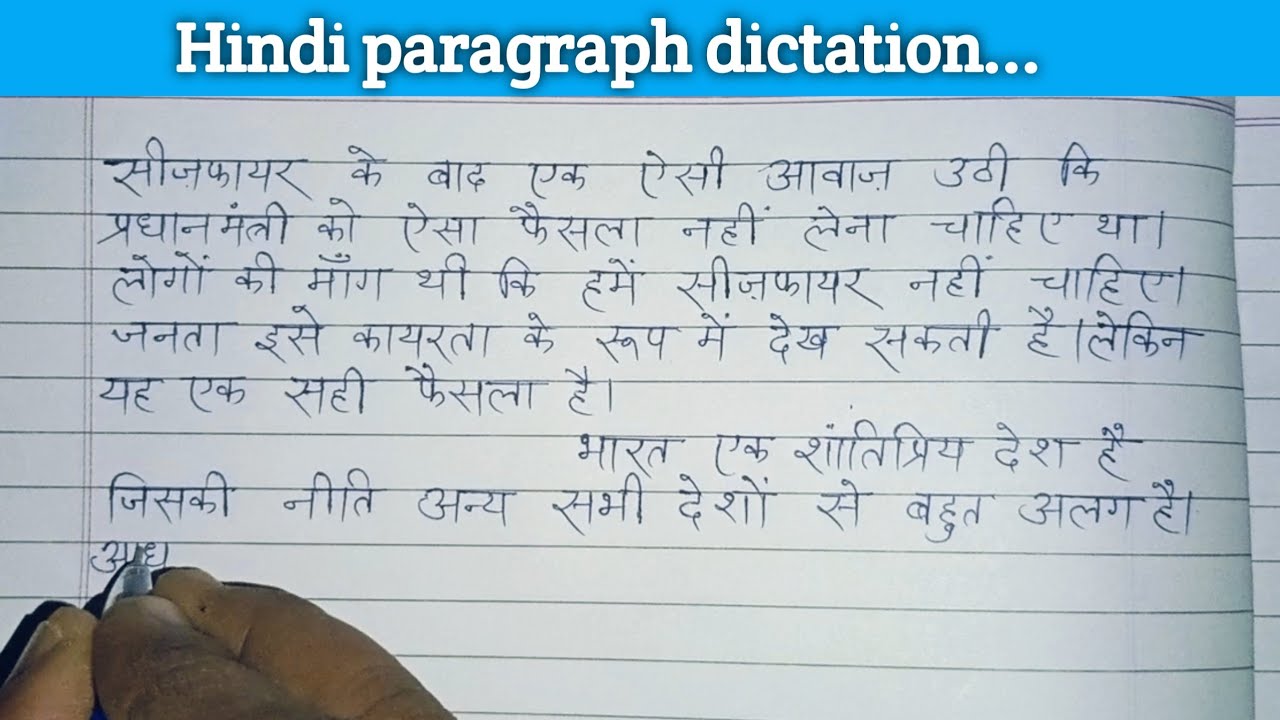 Hindi paragraph dictation...
सीज़फायर के बाद एक ऐसी आवाज़ उठी कि
प्रधानमंत्री को ऐसा फैसला नहीं लेना चाहिए था।
लोगों की माँग थी कि हमें सीज़फायर नहीं चाहिए।
जनता इसे कायरता के रूप में देख सकती है।लेकिन
यह एक सही फैसला है।
भारत एक शांतिप्रिय देश है
जिसकी नीति अन्य सभी देशों से बहुत अलग है।